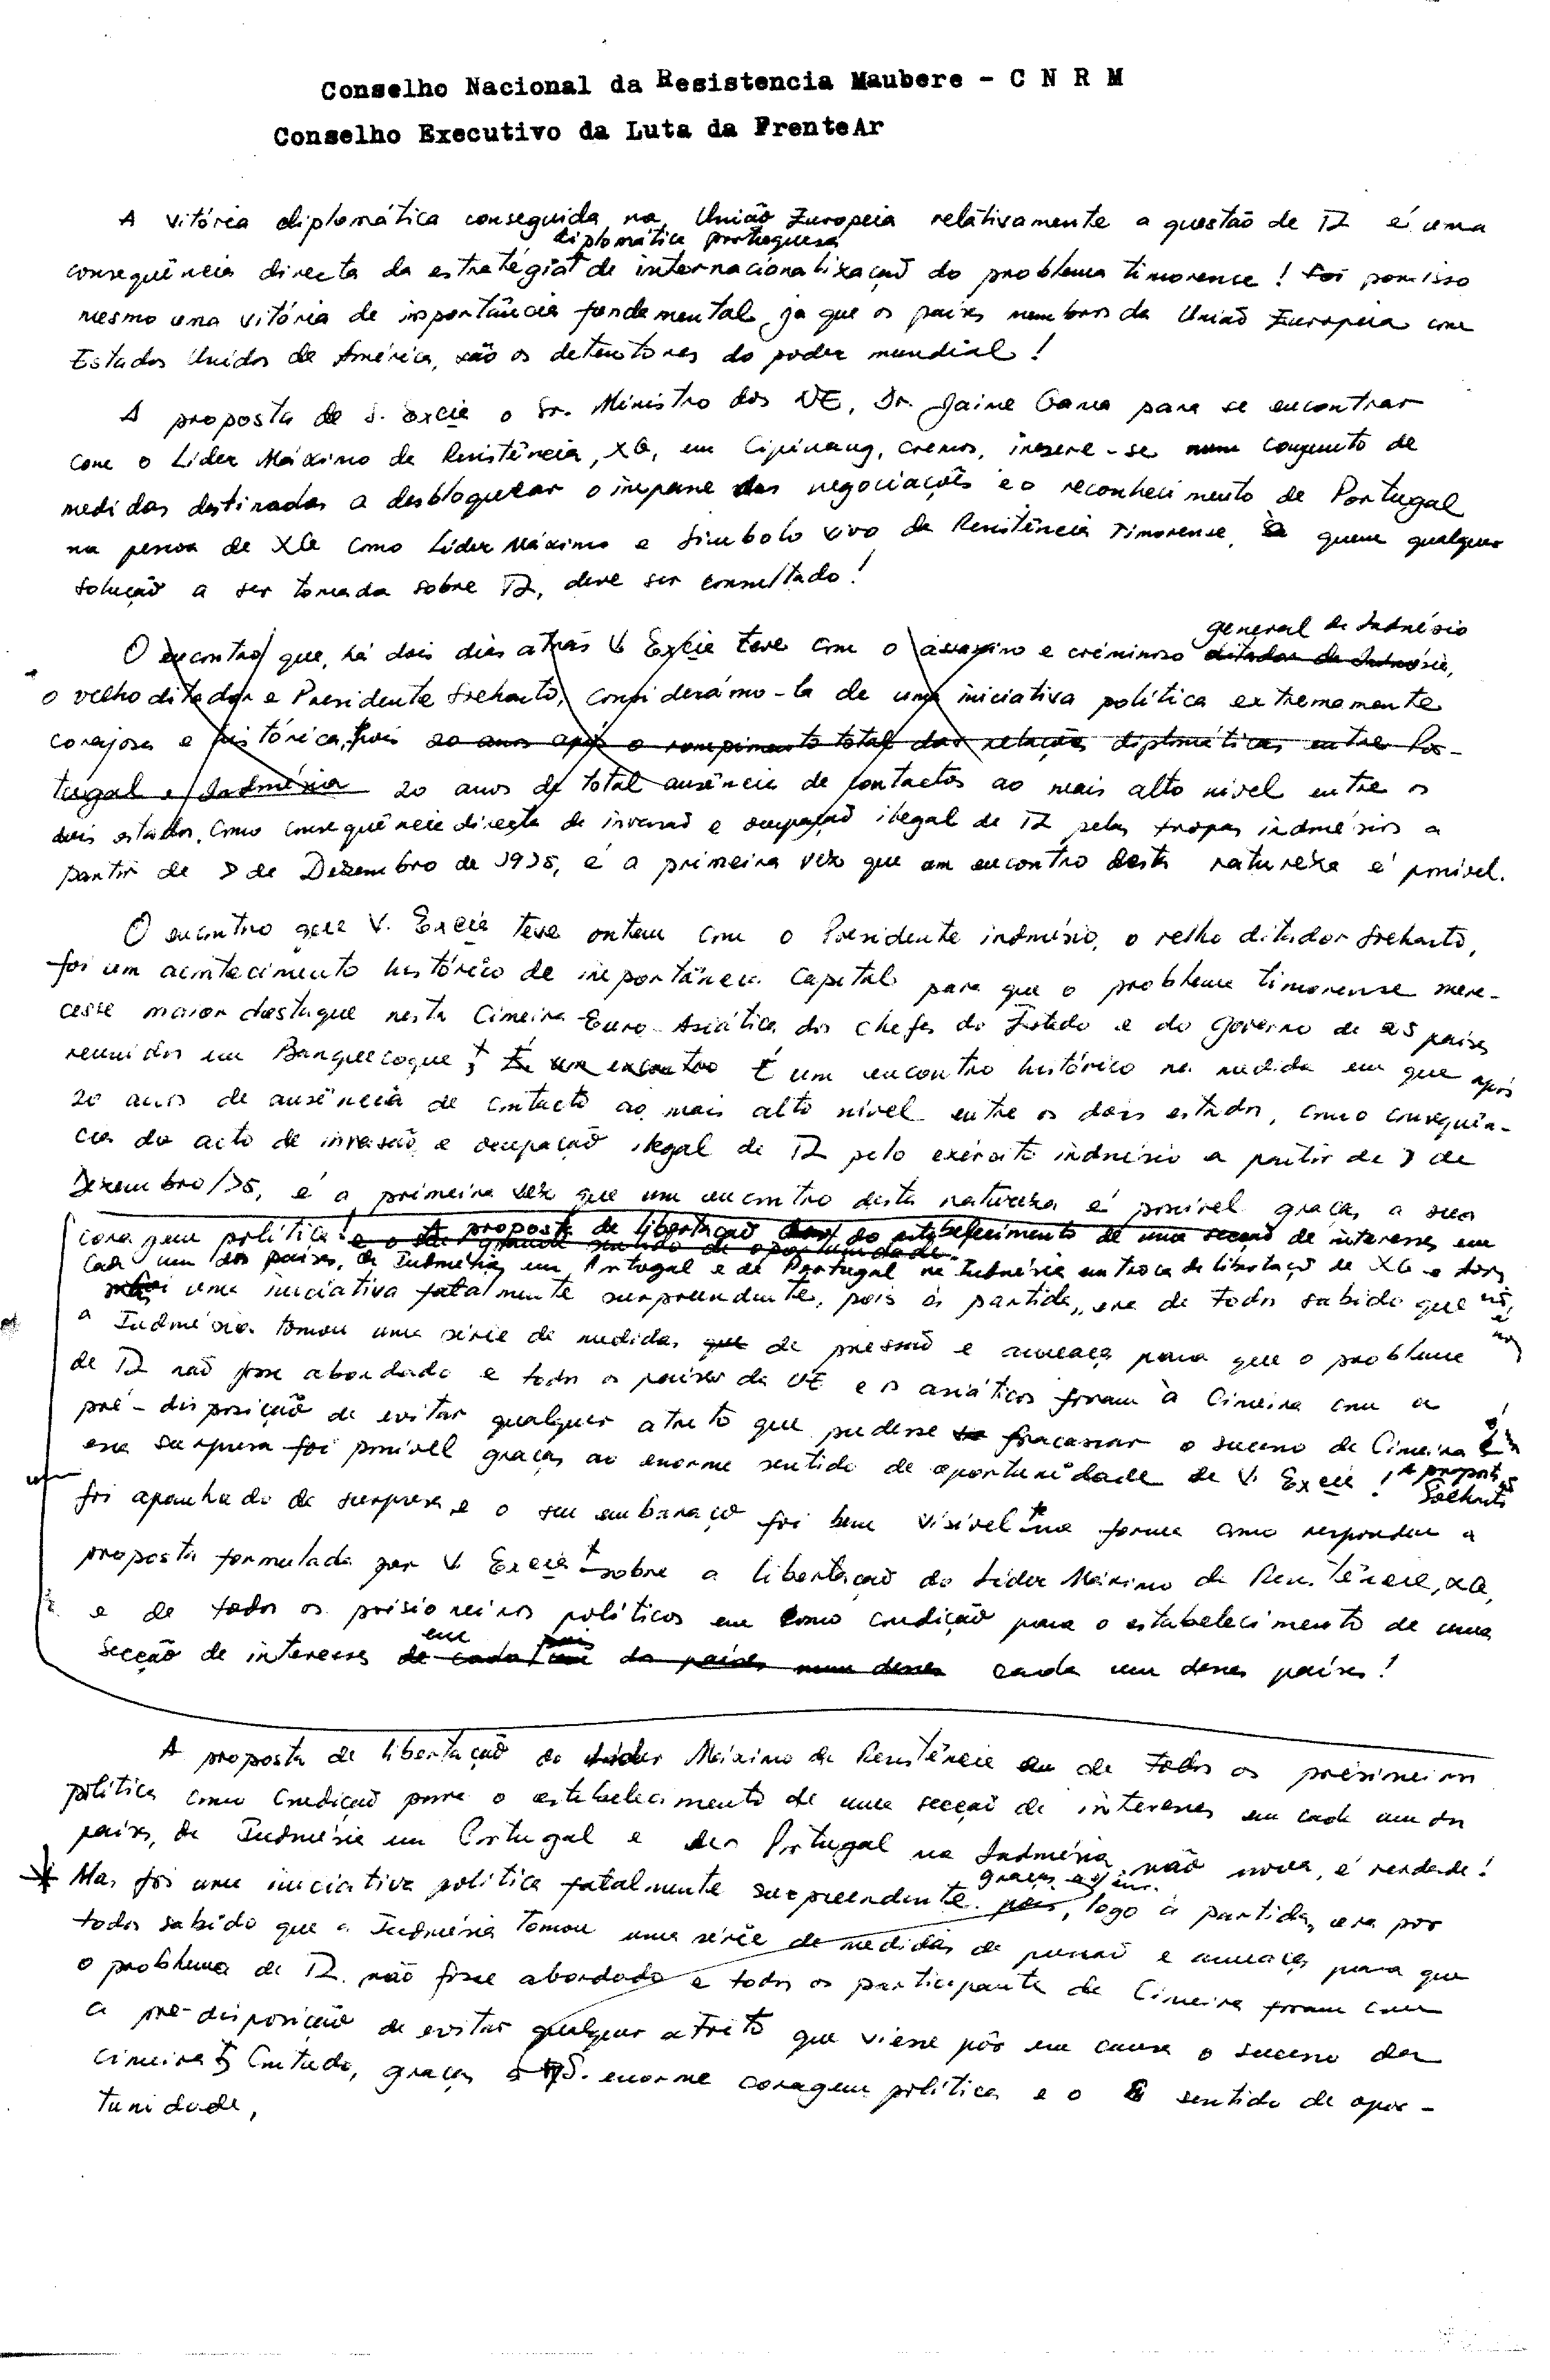 Conselho Nacional da Resistencia Maubere - C N R M
Conselho Executivo da Luta da FrenteAr
A vitória diplomática conseguida na União Europeia relativamente a questão de TL é uma
diplomática portuguesa
consequência directa da estratégia de internacionalização do problema timorense! Foi por isso
mesmo uma vitória de importância fundamental, já que os países membros da União Europeia com
Estados Unidos de América, são os detentores do poder mundial!
A proposta de S. Excia o Sr. Ministro dos NE, Dr. Jaime Gama para se encontrar
com o Líder Máximo da Resistência, XG, em Cipinang, cremos, insere-se num conjunto de
medidas destinadas a desbloquear o impasse das negociações e o reconhecimento de Portugal
na pessoa de XG como Líder Máximo e símbolo vivo da Resistência Timorense, a quem qualquer
solução a ser tomada sobre TL, deve ser consultado!
general da Indonésia
O encontro que, há dois dias atrás V. Excia teve com o assassino e criminoso ditador da Indonésia,
o velho ditador e Presidente Soeharto, considerámo-la de uma iniciativa política extremamente
corajosa e histórica, pois 20 anos após o rompimento total das relações diplomáticas entre Por-
tugal e Indonésia 20 anos de total ausência de contactos ao mais alto nível entre os
dois estados, como consequência directa da invasão e ocupação ilegal de TL pelas tropas indonésias a
partir de 7 de Dezembro de 1975, é a primeira vez que um encontro desta natureza é possível.
O encontro que V. Excia teve ontem com o Presidente indonésio, o velho ditador Soeharto,
foi um acontecimento histórico de importância capital para que o problema timorense mere-
cesse maior destaque nesta Cimeira Euro-Asiática dos chefes do Estado e do Governo de 25 países
reunidos em Banguecoque; É um encontro É um encontro histórico na medida em que após
20 anos de ausência de contacto ao mais alto nível entre os dois estados, como consequên-
cia do acto de invasão e ocupação ilegal de TL pelo exército indonésio a partir de 7 de
Dezembro/75, é a primeira vez que um encontro desta natureza é possível graças a sua
coragem política! e o seu grande sentido de oportunidade.
A proposta de libertação do estabelecimento de uma secção de interesses em
cada um dos países, da Indonésia em Portugal e de Portugal na Indonésia em troca da libertação de XG e dos
foi uma iniciativa fatalmente surpreendente, pois à partida, era de todos sabido que
a Indonésia tomou uma série de medidas que de pressão e ameaça para que o problema
de TL não fosse abordado e todos os países da UE e os asiáticos foram à Cimeira com a
pré-disposição de evitar qualquer atrito que pudesse fracassar o sucesso da Cimeira
essa surpresa foi possível graças ao enorme sentido de oportunidade de V. Excia! A proposta
Soeharto
foi apanhado de surpresa e o seu embaraço foi bem visível na forma como respondeu a
proposta formulada por V. Excia sobre a libertação do Líder Máximo da Resistência, XG,
e de todos os prisioneiros políticos em como condição para o estabelecimento de uma
em
secção de interesses de cada um dos países num desses cada um desses países!
A proposta de libertação do Líder Máximo da Resistência e de todos os prisioneiros
políticos como condição para o estabelecimento de uma secção de interesses em cada um dos
países, da Indonésia em Portugal e de Portugal na Indonésia, não nova, é verdade!
Mas foi uma iniciativa política fatalmente surpreendente pois, logo à partida, era por
todos sabido que a Indonésia tomou uma série de medidas de pressão e ameaça para que
o problema de TL não fosse abordado e todos os participantes da Cimeira foram com
a pré-disposição de evitar qualquer atrito que viesse pôr em causa o sucesso da
cimeira Contudo, graças enorme coragem política e o sentido de opor-
tunidade,